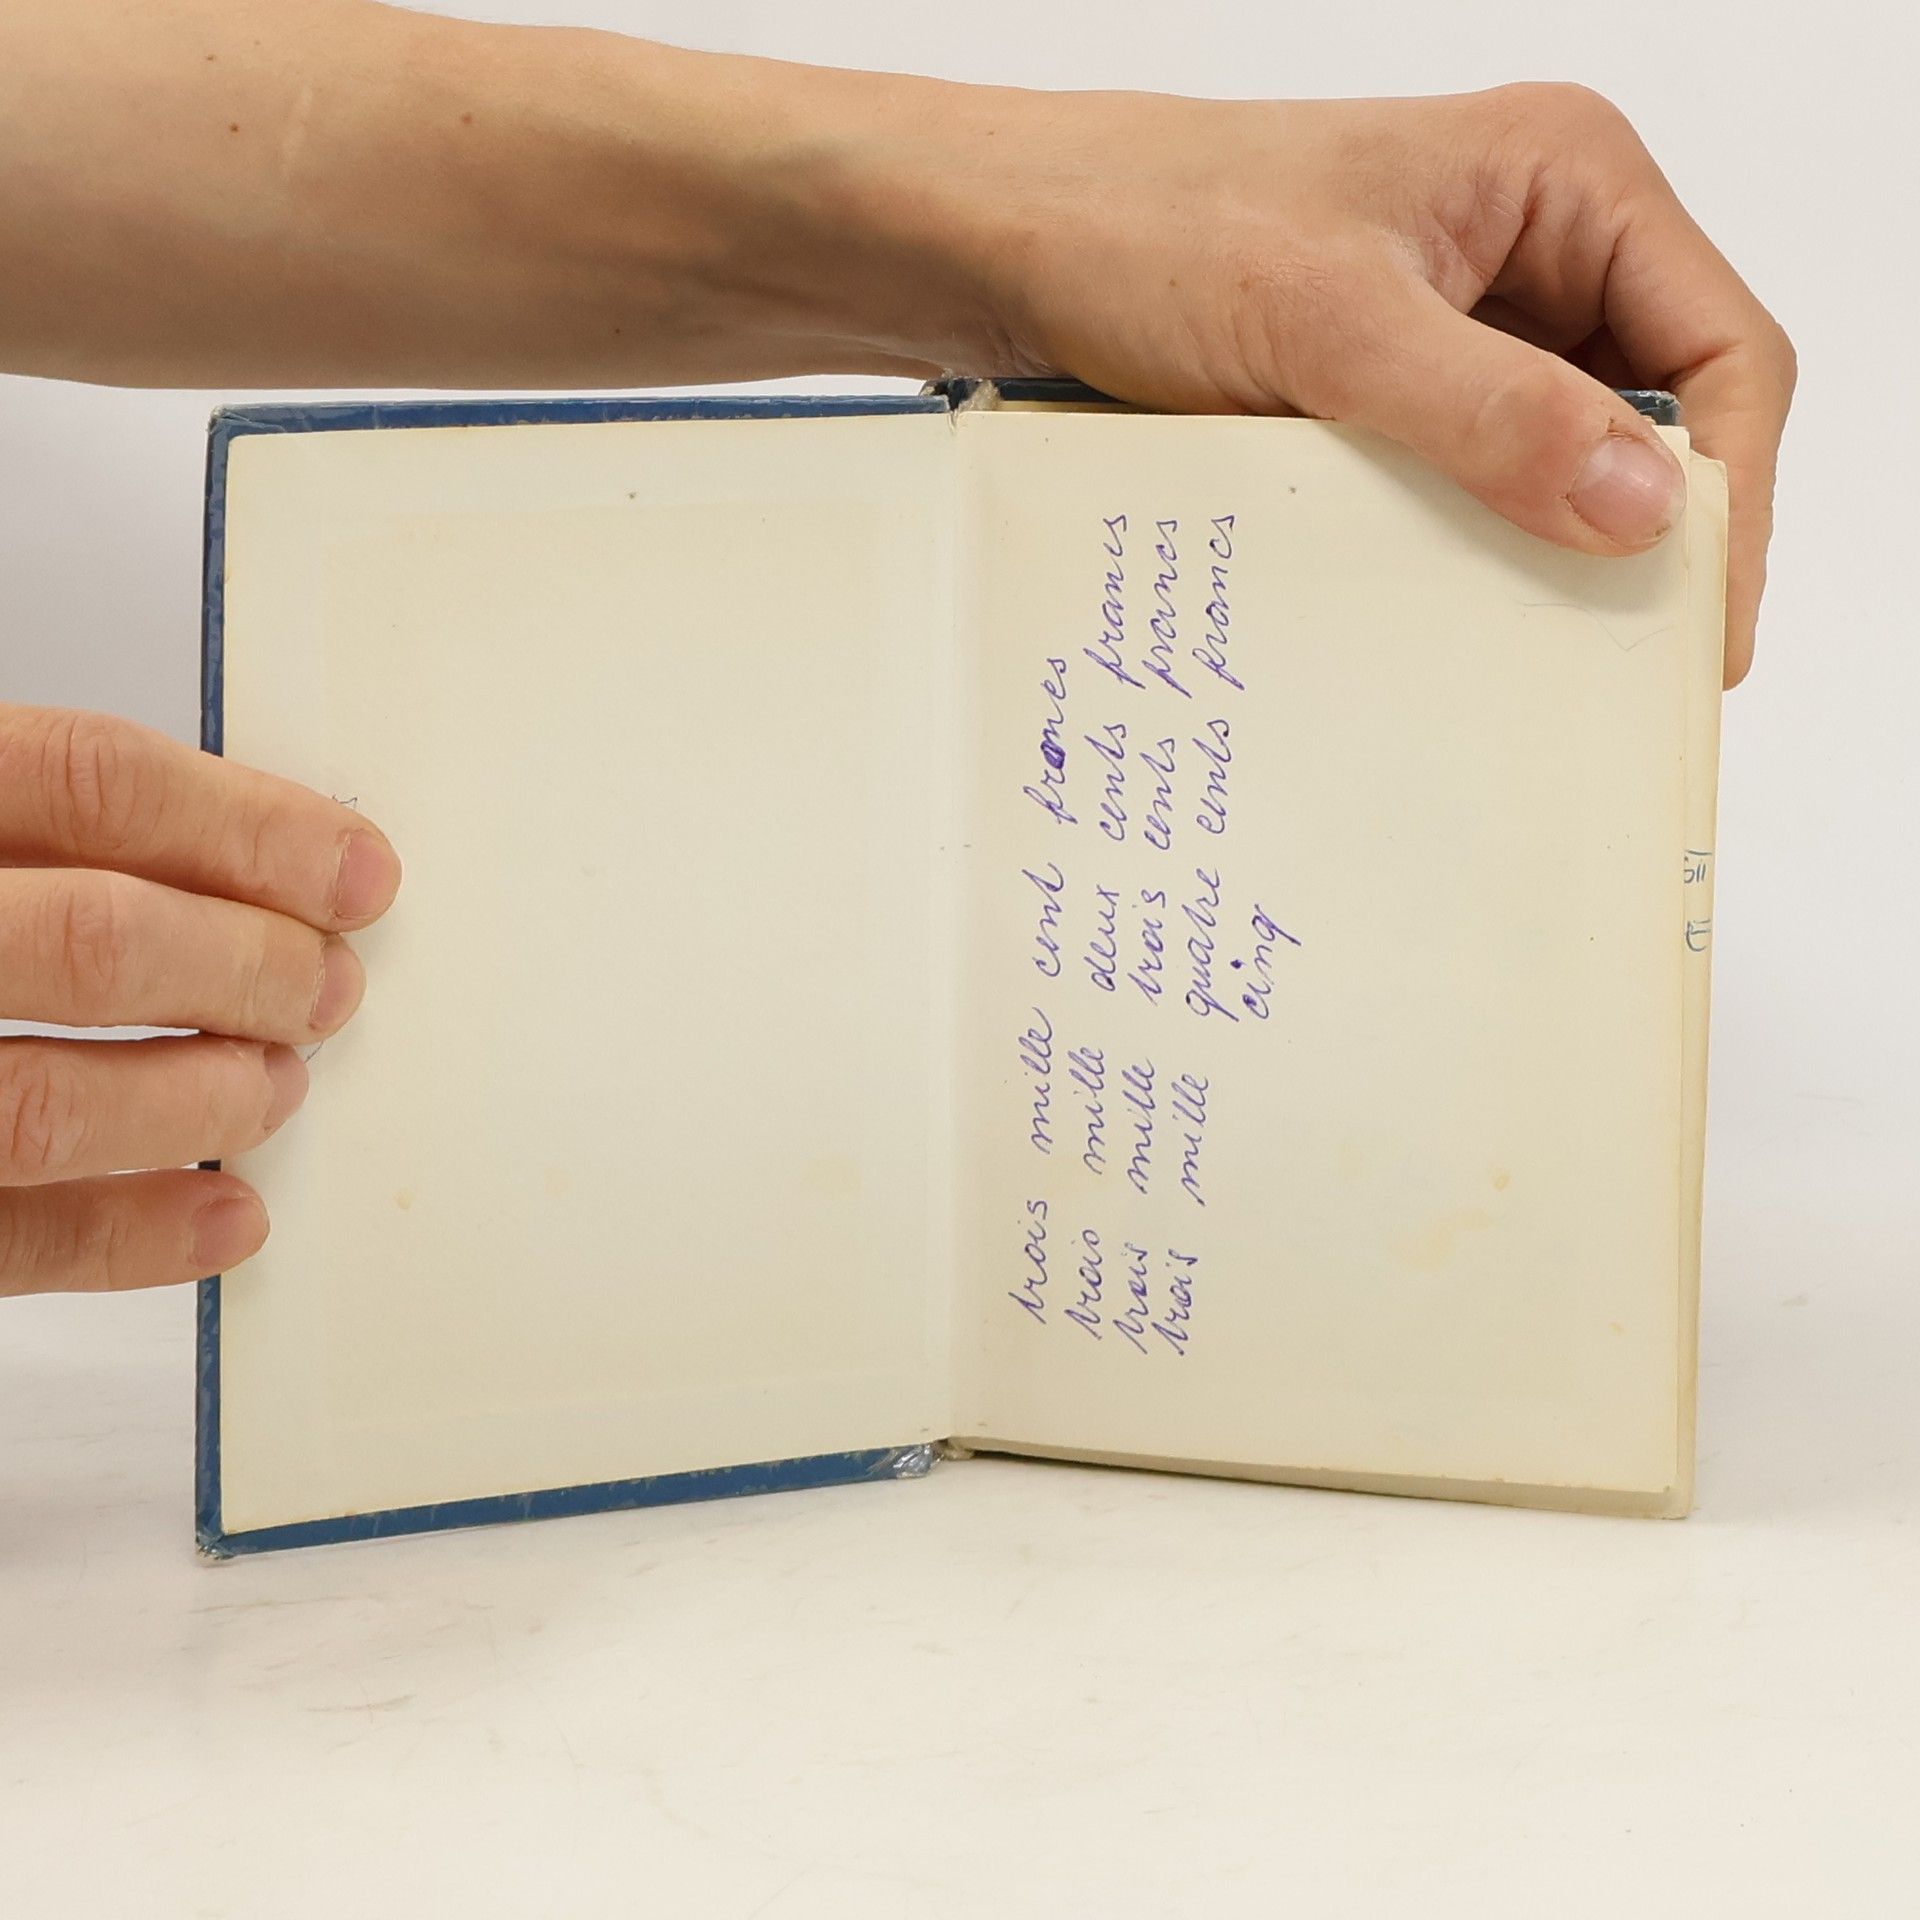 trois mille cent francs
trois mille deux cents francs
trois mille trois cents francs
trois mille quatre cents francs
cinq